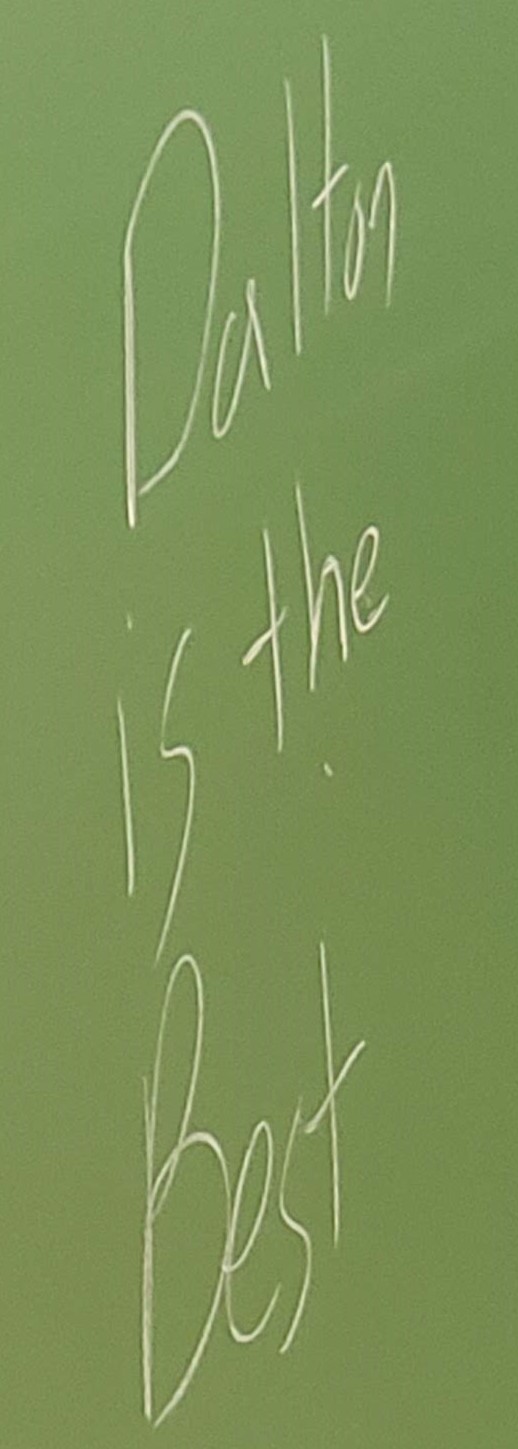 Dalton
is the
Best